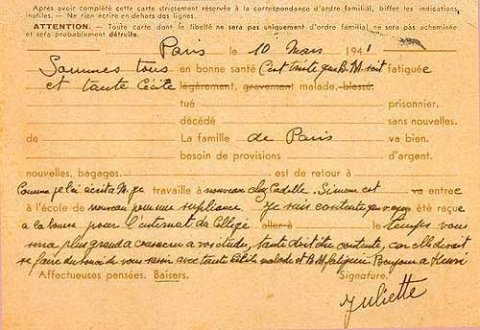 Après avoir complété cette carte strictement réservée à la correspondance d'ordre familial, biffer les indications
inutiles. — Ne rien écrire en dehors des lignes.
ATTENTION. — Toute carte dont le libellé ne sera pas uniquement d'ordre familial, ne sera pas acheminée
et sera probablement détruite.
Paris le 10 Mars 1941
Sommes tous en bonne santé C'est triste que B.M. soit fatiguée
et tante Cécile légèrement, gravement malade, blessé
tué prisonnier.
décédé sans nouvelles.
de La famille de Paris va bien.
besoin de provisions d'argent.
nouvelles, bagages. est de retour à
Comme je l'ai écrit à M. je travaille à nouveau chez Simon est va entrer
à l'école de nouveau pour une Je suis contente que été reçue
a la bourse pour l'internat du aller à le temps vous
plus grand a vos études, tante doit être contente, car elle devait
se faire du souci de vous avec tante Cécile malade et B.M. fatiguée Bonjour a
Affectueuses pensées. Baisers. Signature.
Juliette